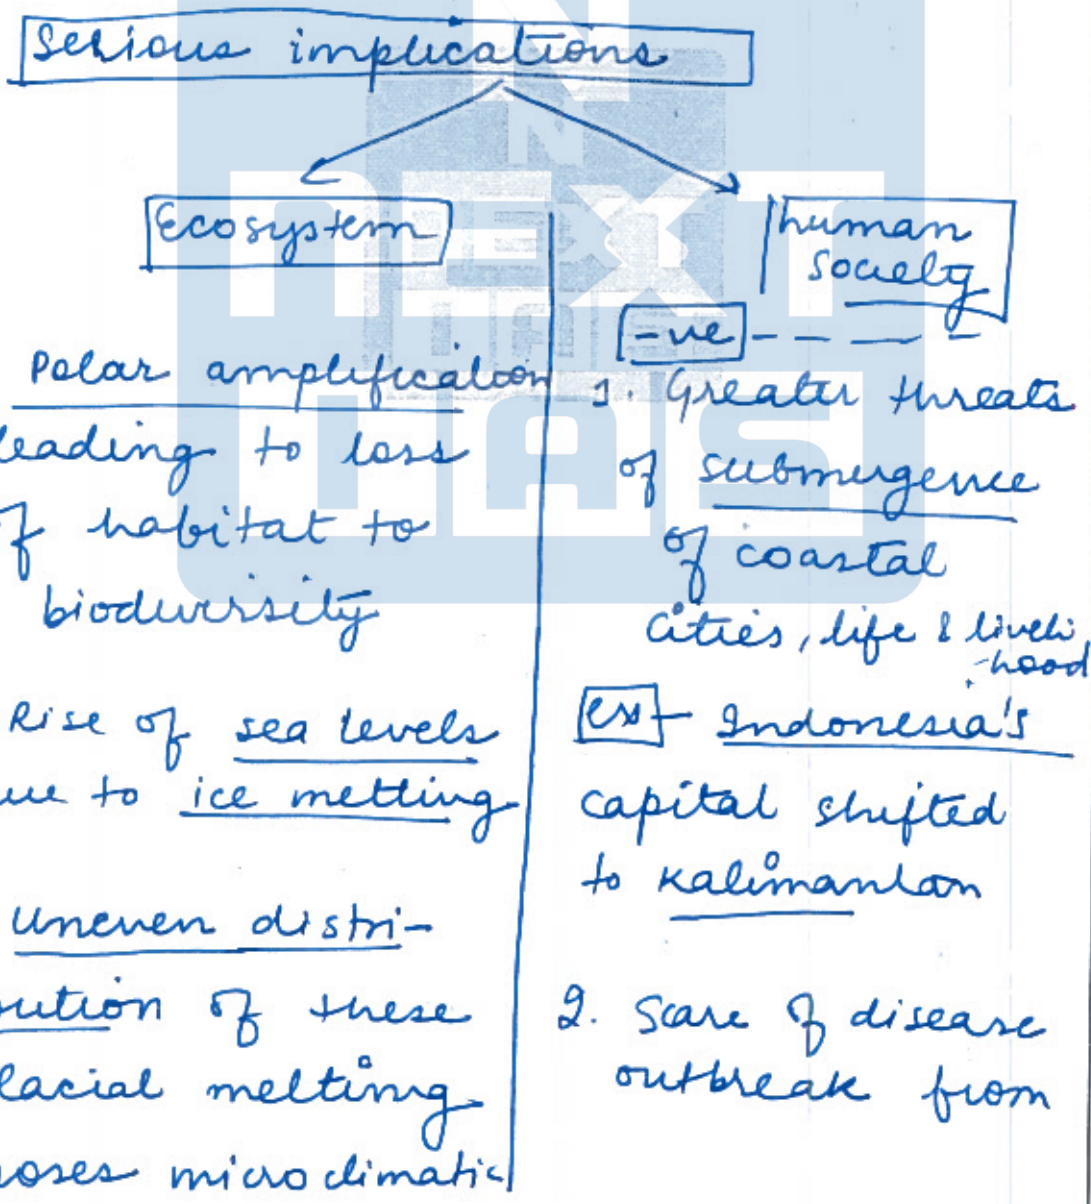 Serious implications
Ecosystem
Polar amplification
leading to loss
of habitat to
biodiversity
Rise of sea levels
ue to ice melting
Uneven distri-
ution of these
lacial melting
poses microclimatic
human
society
-ve
1. Greater threats
of submergence
of coastal
cities, life & liveli
-hood
ex - Indonesia's
capital shifted
to Kalimantan
2. Scare of disease
outbreak from
N
NEXT
IAS